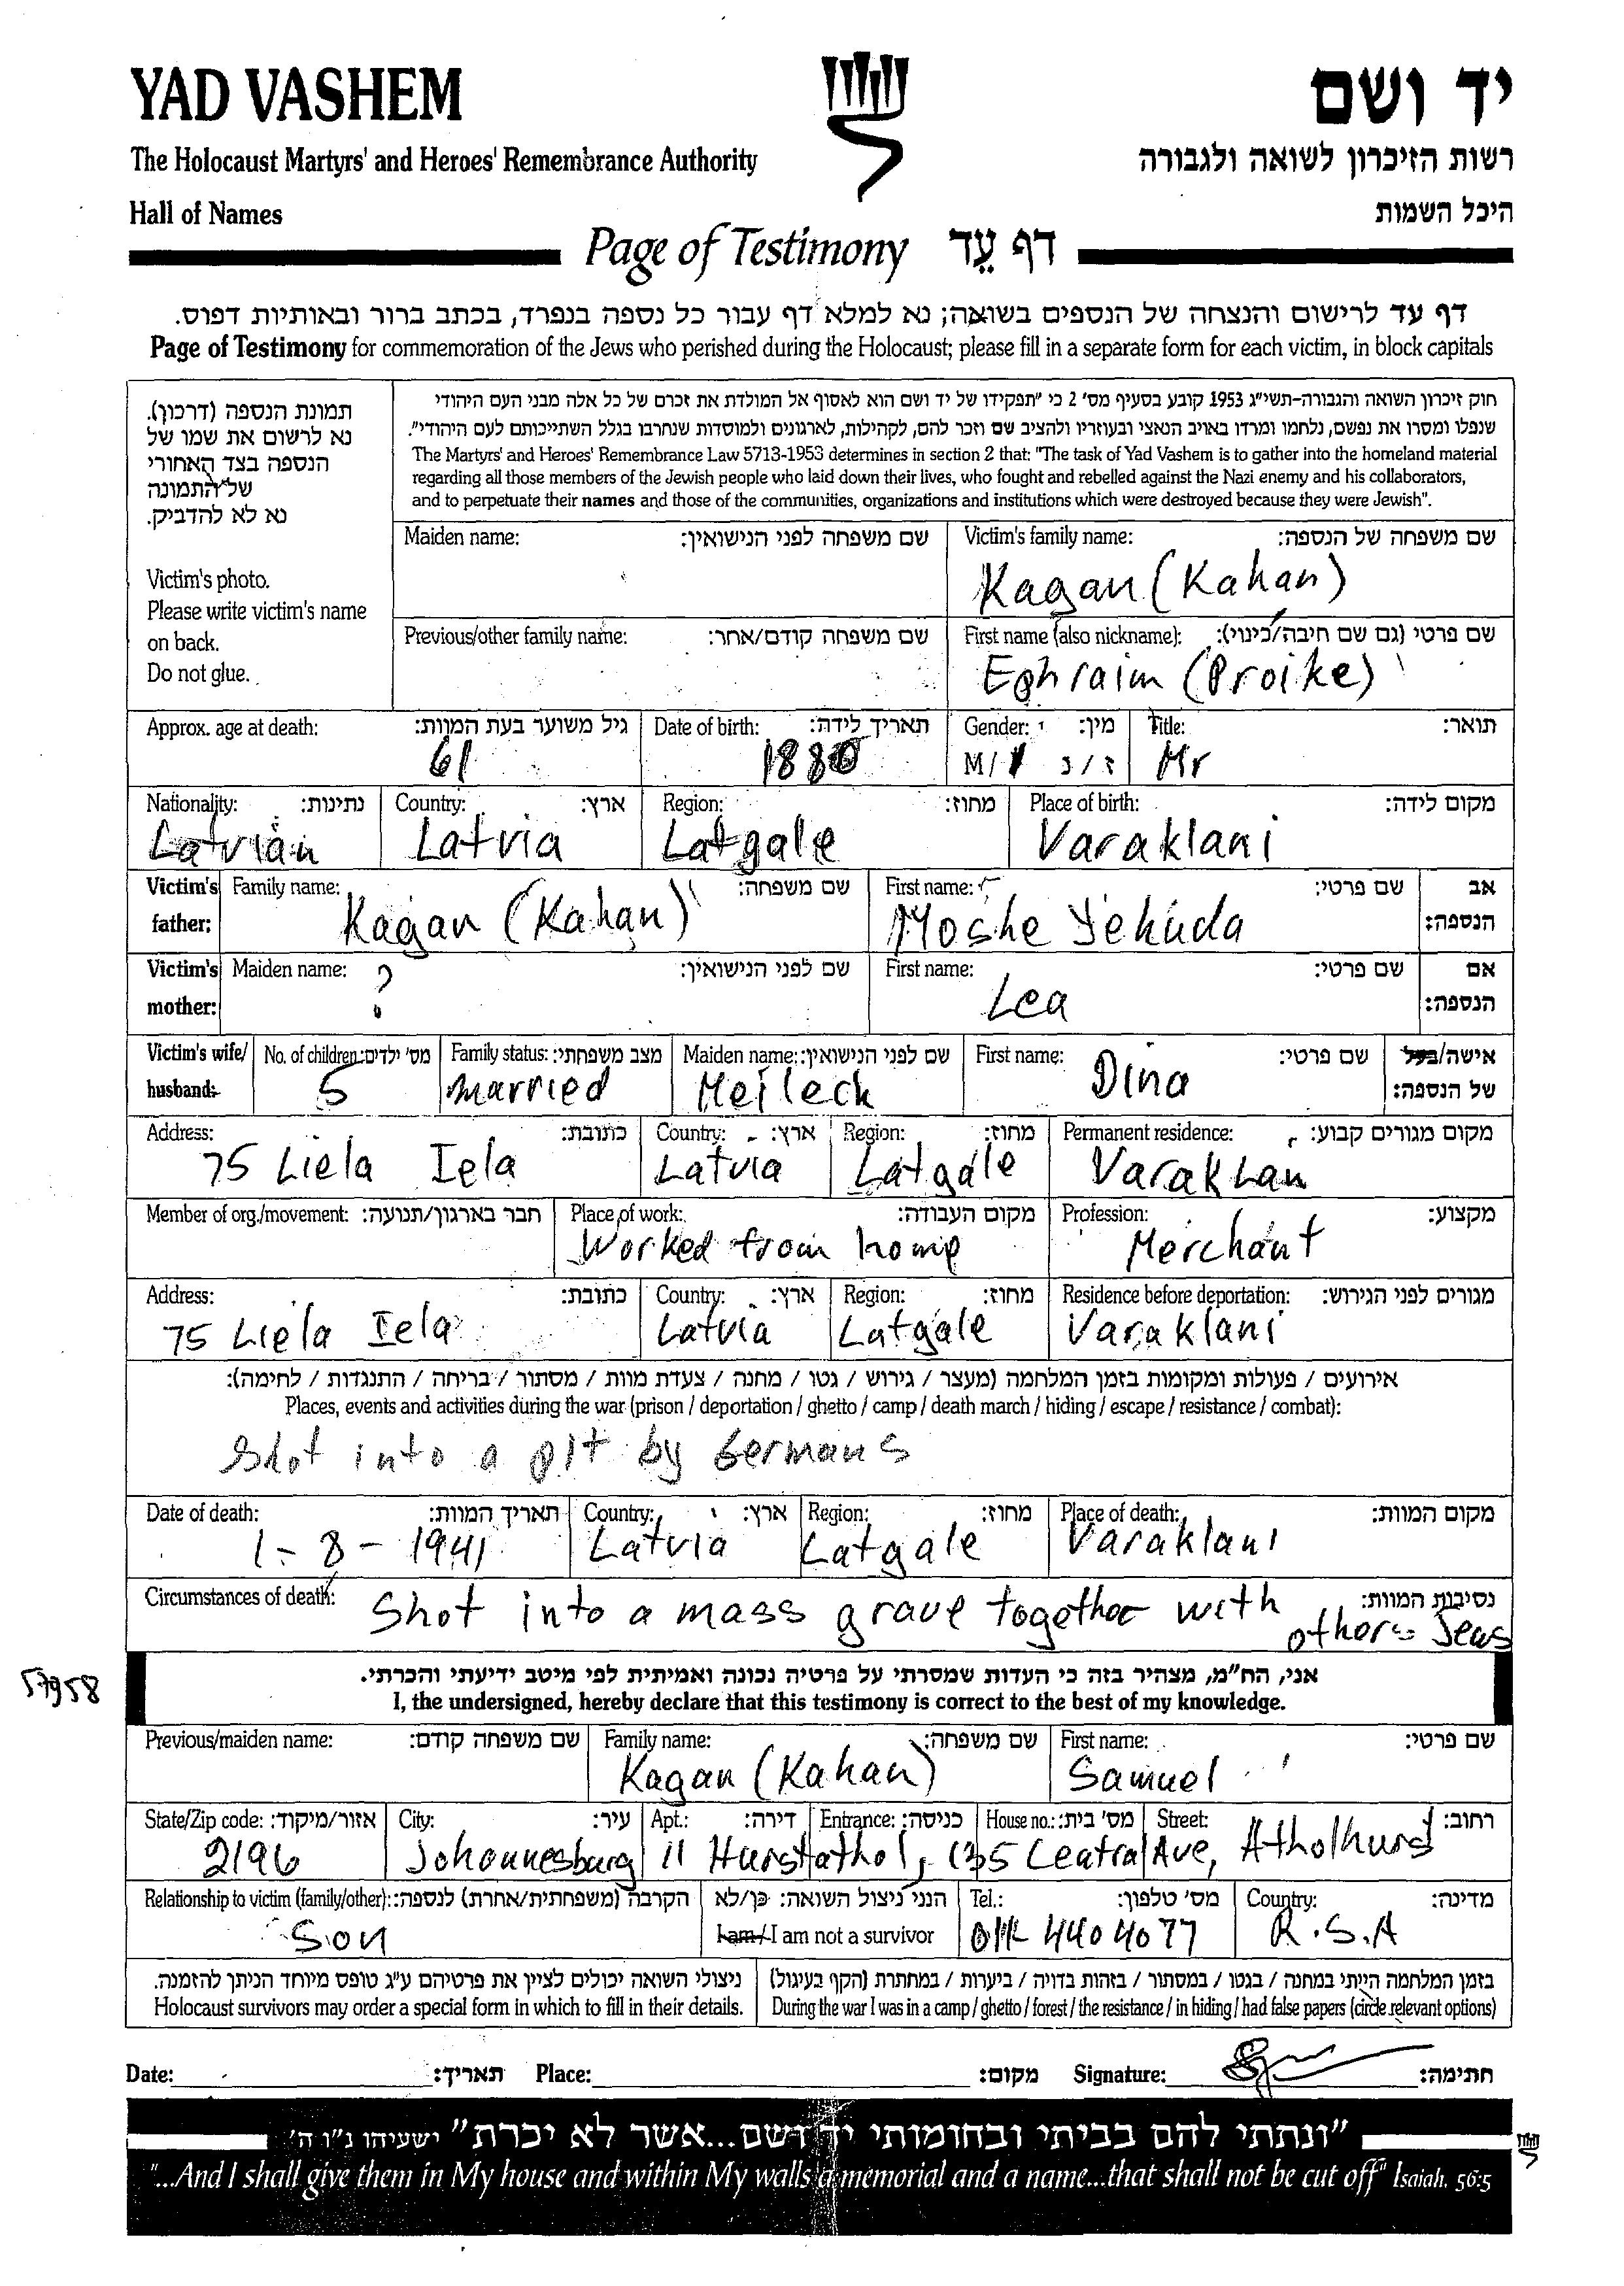 YAD VASHEM
יד ושם
The Holocaust Martyrs' and Heroes' Remembrance Authority
רשות הזיכרון לשואה ולגבורה
Hall of Names
היכל השמות
Page of Testimony דף עֵד
דף עד לרישום והנצחה של הנספים בשואה; נא למלא דף עבור כל נספה בנפרד, בכתב ברור ובאותיות דפוס.
Page of Testimony for commemoration of the Jews who perished during the Holocaust; please fill in a separate form for each victim, in block capitals
תמונת הנספה (דרכון).
נא לרשום את שמו של
הנספה בצד האחורי
של התמונה
נא לא להדביק.
Victim's photo.
Please write victim's name
on back.
Do not glue.
חוק זיכרון השואה והגבורה-תשי"ג 1953 קובע בסעיף מס' 2 כי "תפקידו של יד ושם הוא לאסוף אל המולדת את זכרם של כל אלה מבני העם היהודי
שנפלו ומסרו את נפשם, נלחמו ומרדו באויב הנאצי ובעוזריו ולהציב שם וזכר להם, לקהילות, לארגונים ולמוסדות שנחרבו בגלל השתייכותם לעם היהודי".
The Martyrs' and Heroes' Remembrance Law 5713-1953 determines in section 2 that: "The task of Yad Vashem is to gather into the homeland material
regarding all those members of the Jewish people who laid down their lives, who fought and rebelled against the Nazi enemy and his collaborators,
and to perpetuate their names and those of the communities, organizations and institutions which were destroyed because they were Jewish".
Maiden name: שם משפחה לפני הנישואין:
Victim's family name: שם משפחה של הנספה:
Kagan (Kahan)
Previous/other family name: שם משפחה קודם/אחר:
First name (also nickname): שם פרטי (גם שם חיבה/כינוי):
Ephraim (Proike)
Approx. age at death: גיל משוער בעת המוות: Date of birth: תאריך לידה: Gender: מין: Title: תואר:
61 1880 M/ ז/נ Mr
Nationality: נתינות: Country: ארץ: Region: מחוז: Place of birth: מקום לידה:
Latvian Latvia Latgale Varaklani
Victim's father: Family name: שם משפחה: First name: שם פרטי: אב הנספה:
Kagan (Kahan) Moshe Yehuda
Victim's mother: Maiden name: שם לפני הנישואין: First name: שם פרטי: אם הנספה:
? Lea
Victim's wife/ husband: No. of children: מס' ילדים: Family status: מצב משפחתי: Maiden name: שם לפני הנישואין: First name: שם פרטי: אישה/בעל של הנספה:
5 married Meileck Dina
Address: כתובת: Country: ארץ: Region: מחוז: Permanent residence: מקום מגורים קבוע:
75 Liela Iela Latvia Latgale Varaklan
Member of org./movement: חבר בארגון/תנועה: Place of work: מקום העבודה: Profession: מקצוע:
Worked from home Merchant
Address: כתובת: Country: ארץ: Region: מחוז: Residence before deportation: מגורים לפני הגירוש:
75 Liela Iela Latvia Latgale Varaklani
אירועים / פעולות ומקומות בזמן המלחמה (מעצר / גירוש / גטו / מחנה / צעדת מוות / מסתור / בריחה / התנגדות / לחימה):
Places, events and activities during the war (prison / deportation / ghetto / camp / death march / hiding / escape / resistance / combat):
Shot into a pit by Germans
Date of death: תאריך המוות: Country: ארץ: Region: מחוז: Place of death: מקום המוות:
1-8-1941 Latvia Latgale Varaklani
Circumstances of death: נסיבות המוות:
Shot into a mass grave together with
others Jews
57958
אני, הח"מ, מצהיר בזה כי העדות שמסרתי על פרטיה נכונה ואמיתית לפי מיטב ידיעתי והכרתי.
I, the undersigned, hereby declare that this testimony is correct to the best of my knowledge.
Previous/maiden name: שם משפחה קודם: Family name: שם משפחה: First name: שם פרטי:
Kagan (Kahan) Samuel
State/Zip code: אזור/מיקוד: City: עיר: Apt.: דירה: Entrance: כניסה: House no.: מס' בית: Street: רחוב:
2196 Johannesburg 11 Hurstathol, 135 Central Ave, Atholhurst
Relationship to victim (family/other): הקרבה (משפחתית/אחרת) לנספה: הנני ניצול השואה: כן/לא Tel.: מס' טלפון: Country: מדינה:
Son I am/ I am not a survivor 011 440 4077 R.S.A
ניצולי השואה יכולים לציין את פרטיהם ע"ג טופס מיוחד הניתן להזמנה.
Holocaust survivors may order a special form in which to fill in their details.
בזמן המלחמה הייתי במחנה / בגטו / במסתור / בזהות בדויה / ביערות / במחתרת (הקף בעיגול)
During the war I was in a camp / ghetto / forest / the resistance / in hiding / had false papers (circle relevant options)
Date: תאריך: Place: מקום: Signature: חתימה:
"ונתתי להם בביתי ובחומותי יד ושם...אשר לא יכרת" ישעיהו נ"ו ה'
"...And I shall give them in My house and within My walls a memorial and a name...that shall not be cut off" Isaiah, 56:5